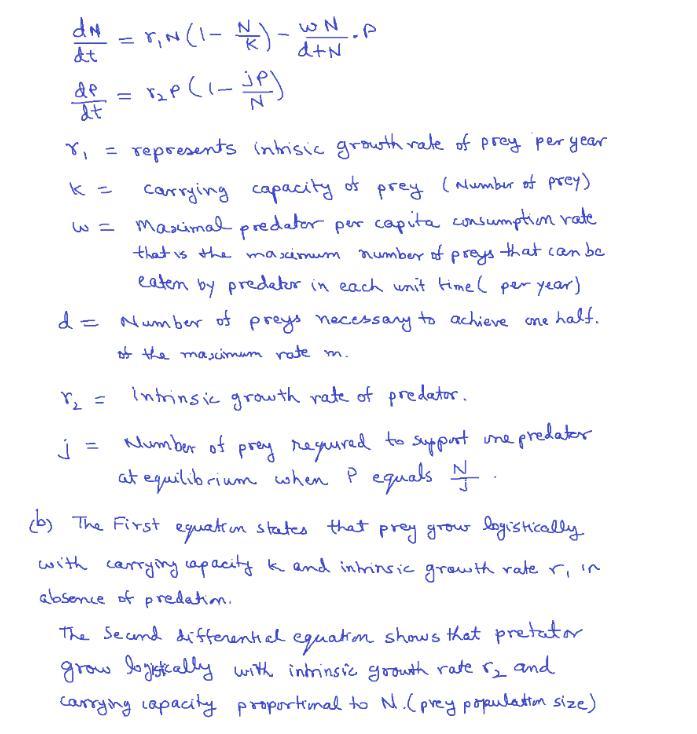 dN/dt = r₁N(1 - N/K) - wN/d+N . P
dP/dt = r₂P(1 - jP/N)
r₁ = represents intrisic growth rate of prey per year
k = carrying capacity of prey (Number of prey)
w = Maximal predator per capita consumption rate
that is the maximum number of preys that can be
eaten by predator in each unit time( per year)
d = Number of preys necessary to achieve one half.
of the maximum rate m.
r₂ = Intrinsic growth rate of predator.
j = Number of prey required to support one predator
at equilibrium when P equals N/J .
(b) The First equation states that prey grow logistically
with carrying capacity k and intrinsic growth rate r₁ in
absence of predation.
The Second differential equation shows that pretator
grow logistically with intrinsic growth rate r₂ and
carrying capacity proportional to N.(prey population size)